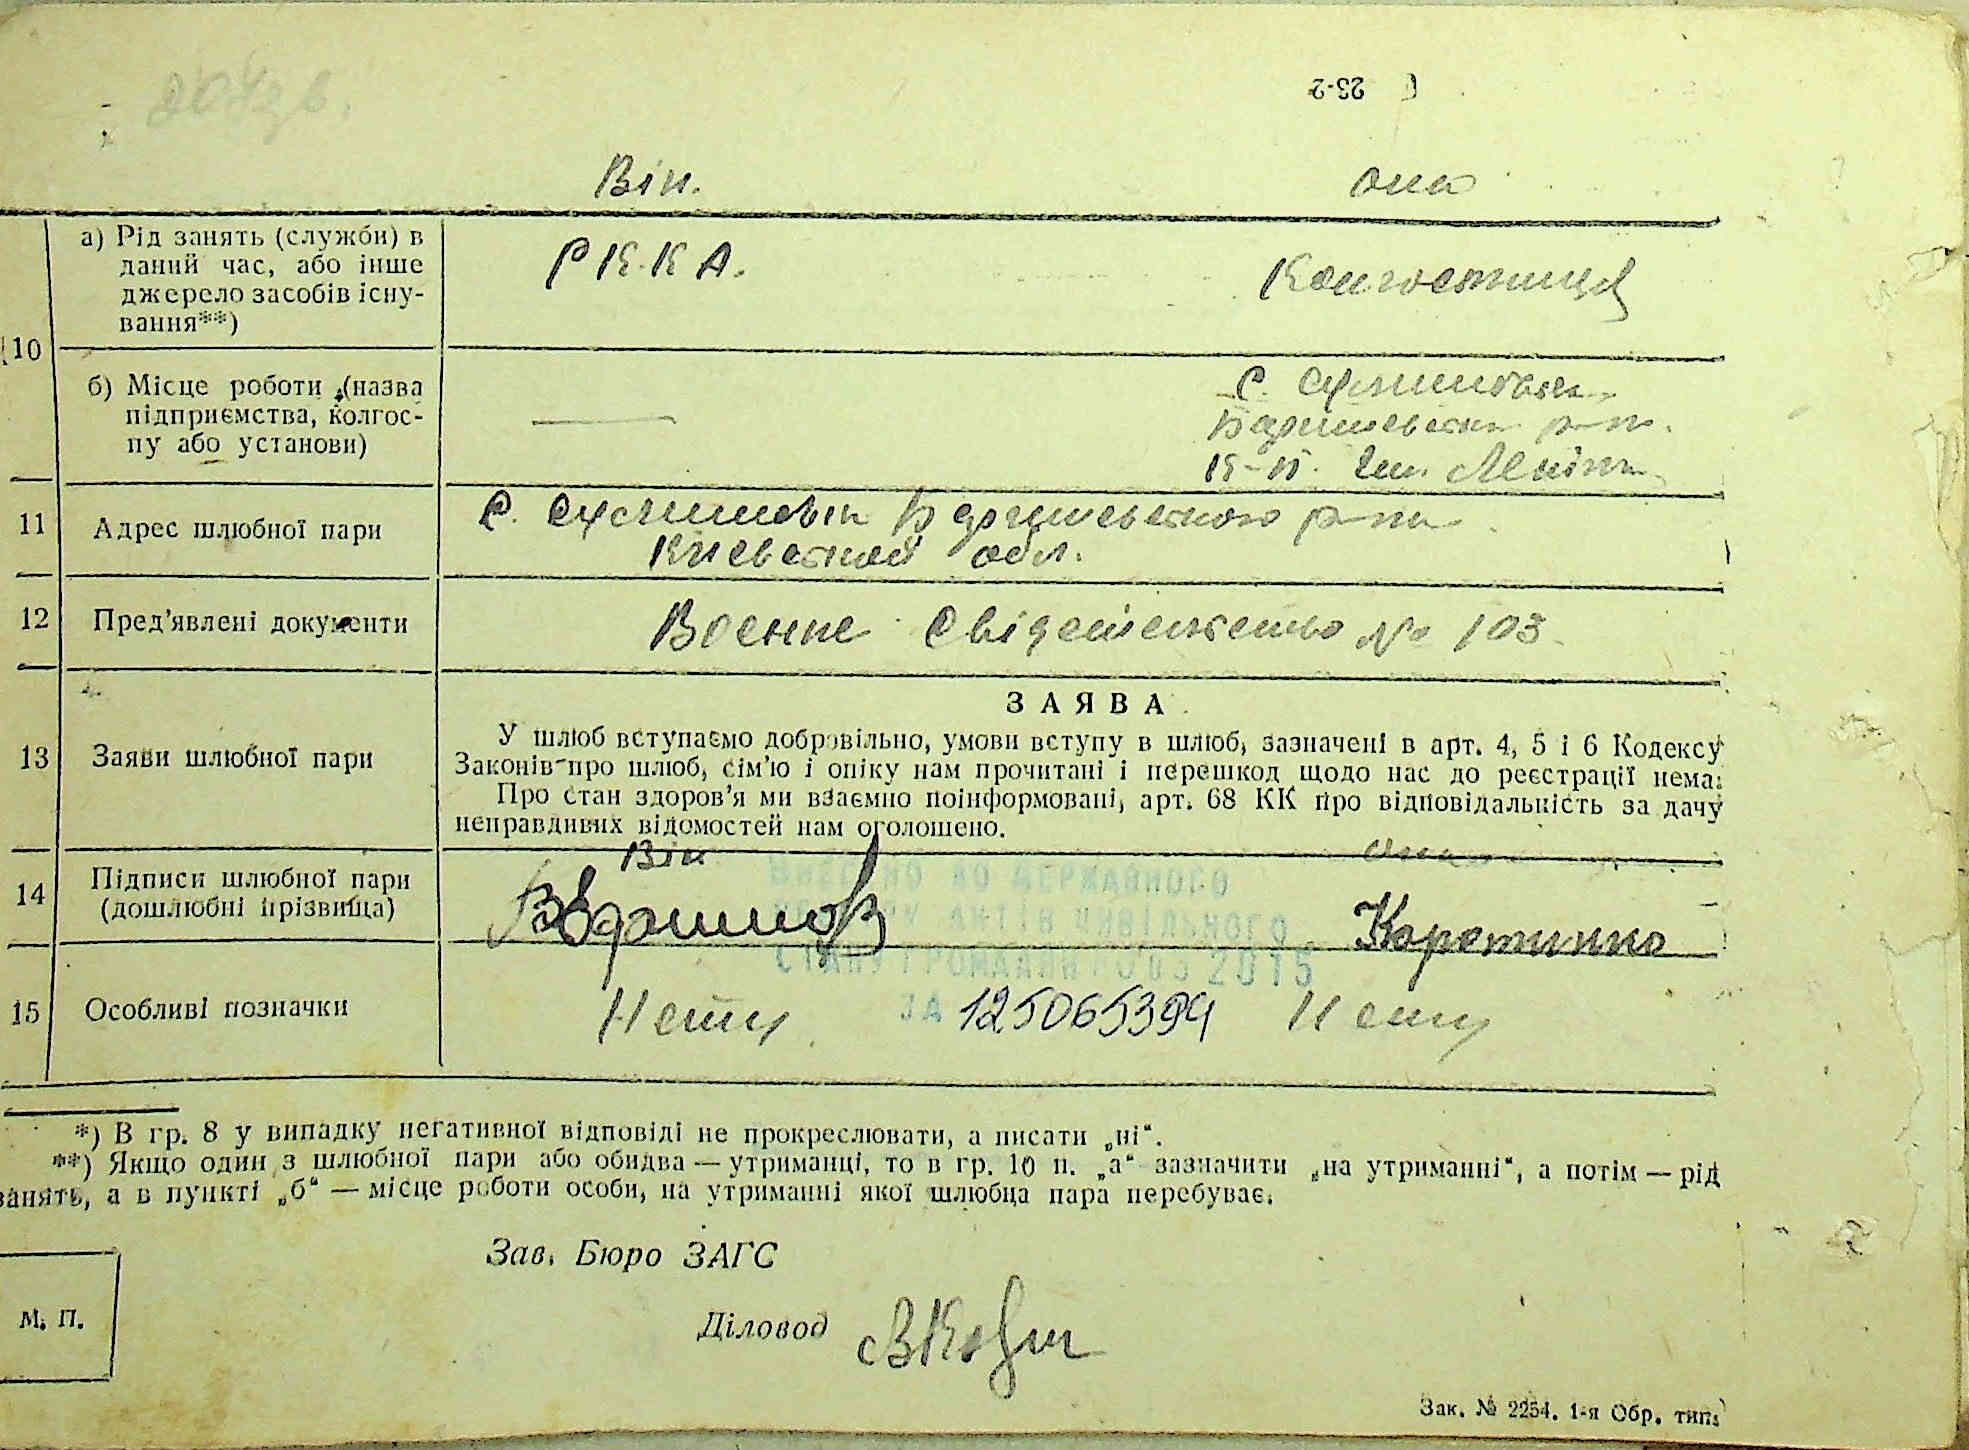 23-2
Він. она
10
а) Рід занять (служби) в
даний час, або інше
джерело засобів існу-
вання**)
Р К. К А.
Колгостниця
б) Місце роботи (назва
підприємства, колгос-
пу або установи)
с.
Баришевськ р-н.
К-п. Ім. Леніна
11
Адрес шлюбної пари
с. Баришевського р-на
Киевской обл.
12
Пред'явлені документи
Военне свідетельство № 103
13
Заяви шлюбної пари
ЗАЯВА
У шлюб вступаємо добровільно, умови вступу в шлюб, зазначені в арт. 4, 5 і 6 Кодексу
Законів про шлюб, сім'ю і опіку нам прочитані і перешкод щодо нас до реєстрації нема.
Про стан здоров'я ми взаємно поінформовані, арт. 68 КК про відповідальність за дачу
неправдивих відомостей нам оголошено.
14
Підписи шлюбної пари
(дошлюбні прізвища)
Він она
ВНЕСЕНО ДО ДЕРЖАВНОГО
РЕЄСТРУ АКТІВ ЦИВІЛЬНОГО
СТАНУ ГРОМАДЯН 2015
ЗА 125065394
15
Особливі позначки
Нету Нету
*) В гр. 8 у випадку негативної відповіді не прокреслювати, а писати „ні“.
**) Якщо один з шлюбної пари або обидва — утриманці, то в гр. 10 п. „а“ зазначити „на утриманні“, а потім — рід
занять, а в пункті „б“ — місце роботи особи, на утриманні якої шлюбна пара перебуває.
Зав. Бюро ЗАГС
М. П.
Діловод
Зак. № 2254. 1-я Обр. тип.